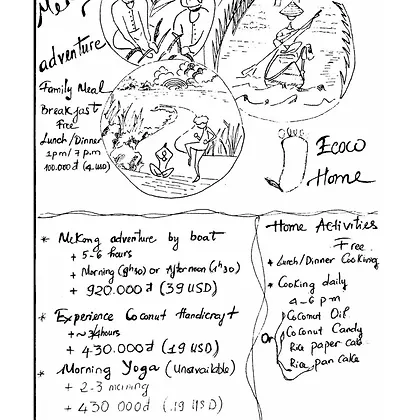 adventure
Family Meal
Breakfast
Free
Lunch/Dinner
1pm/7pm
100.000đ (4 USD)
Ecoco
Home
* MeKong adventure by boat
+ 5-6 hours
+ Morning (8h30) or Afternoon (1h30)
+ 920.000đ (39 USD)
* Experience Coconut Handicraft
+ ~ 3/4hours
+ 430.000đ (19 USD)
* Morning Yoga (Unavailable)
+ 2-3 morning
+ 430 000đ (19 USD)
Home Activities
Free
* Lunch/Dinner Cooking
* Cooking daily
4-6 pm
Coconut Oil
Or Coconut Candy
Rice paper cake
Rice pan cake